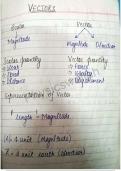 VECTORS
Scalar Vector
Magnitude Magnitude Direction
Scalar quantity Vector quantity
Mass Force
Speed Velocity
Distance Displacement
Representation of Vector
Length - Magnitude
4 unit (Magnitude)
4 unit south (direction)